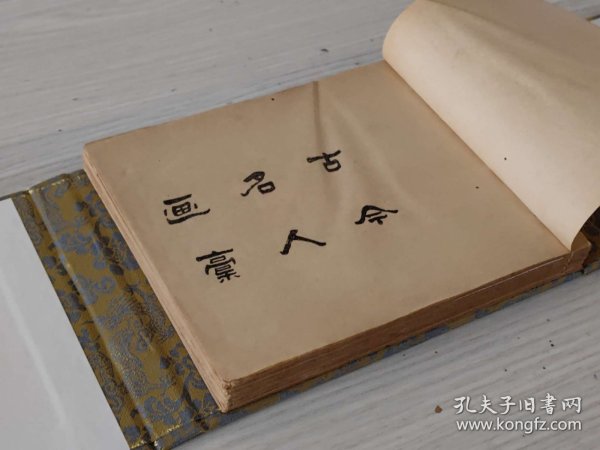 古今
名人
画稾
孔夫子旧书网
www.kongfz.com